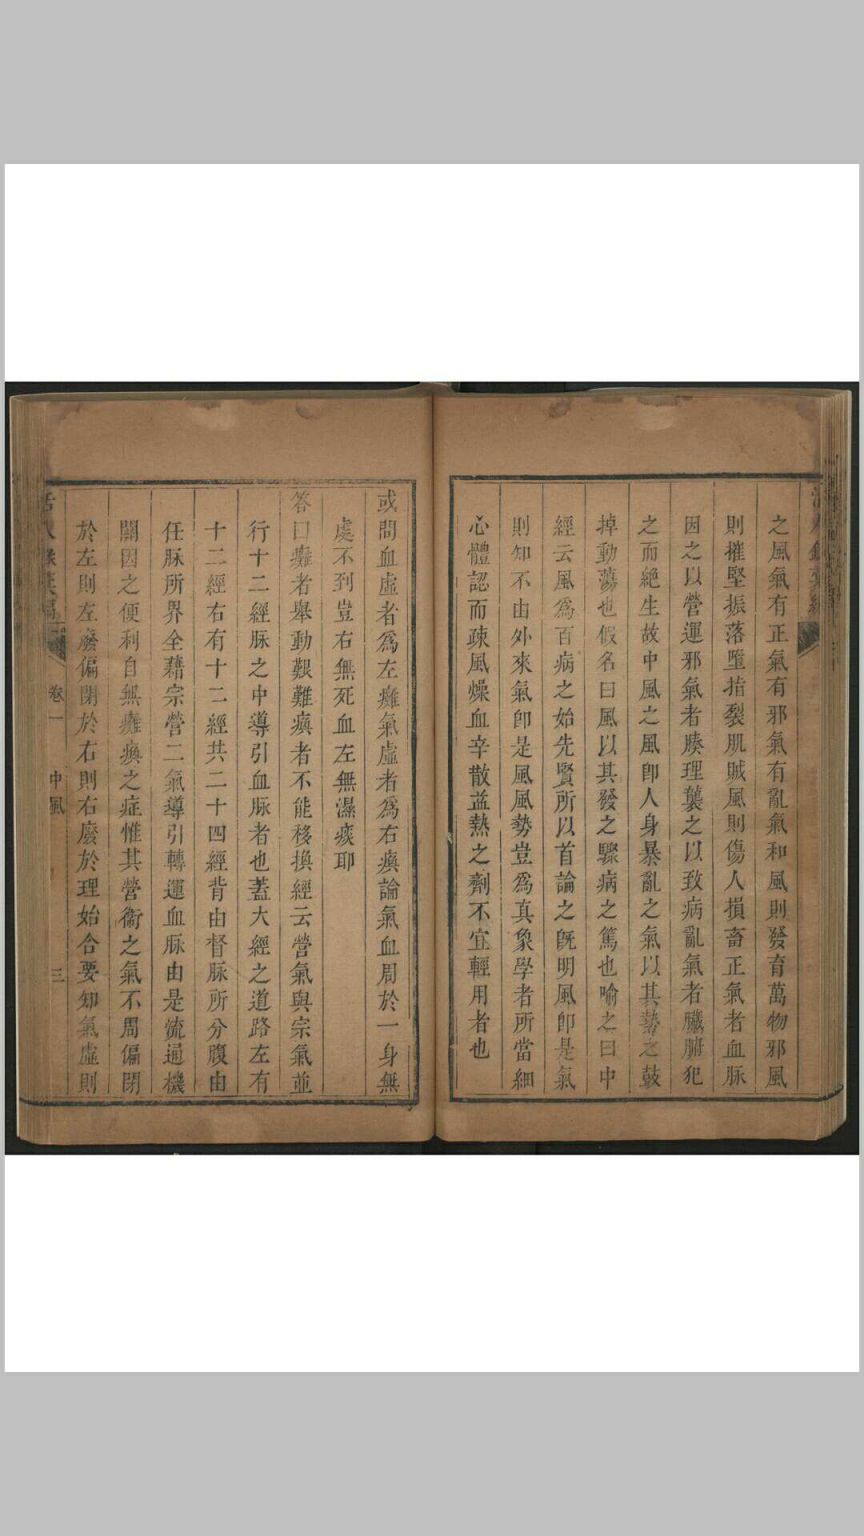 之風氣有正氣有邪氣有亂氣和風則發育萬物邪風
則摧堅振落墮指裂肌賊風則傷人損畜正氣者血脉
因之以營運邪氣者腠理襲之以致病亂氣者臟腑犯
之而絶生故中風之風卽人身暴亂之氣以其勢之鼓
掉動蕩也假名曰風以其發之驟病之篤也喻之曰中
經云風爲百病之始先賢所以首論之旣明風卽是氣
則知不由外來氣卽是風風勢豈爲真象學者所當細
心體認而疎風燥血辛散益熱之劑不宜輕用者也
或問血虛者爲左癱氣虛者爲右瘓論氣血周於一身無
處不到豈右無死血左無濕痰耶
答曰癱者舉動艱難瘓者不能移換經云營氣與宗氣並
行十二經脉之中導引血脉者也蓋大經之道路左有
十二經右有十二經共二十四經背由督脉所分腹由
任脉所界全藉宗營二氣導引轉運血脉由是流通機
關因之便利自無癱瘓之症惟其營衞之氣不周偏閉
於左則左廢偏閉於右則右廢於理始合要知氣虛則
卷一 中風 三